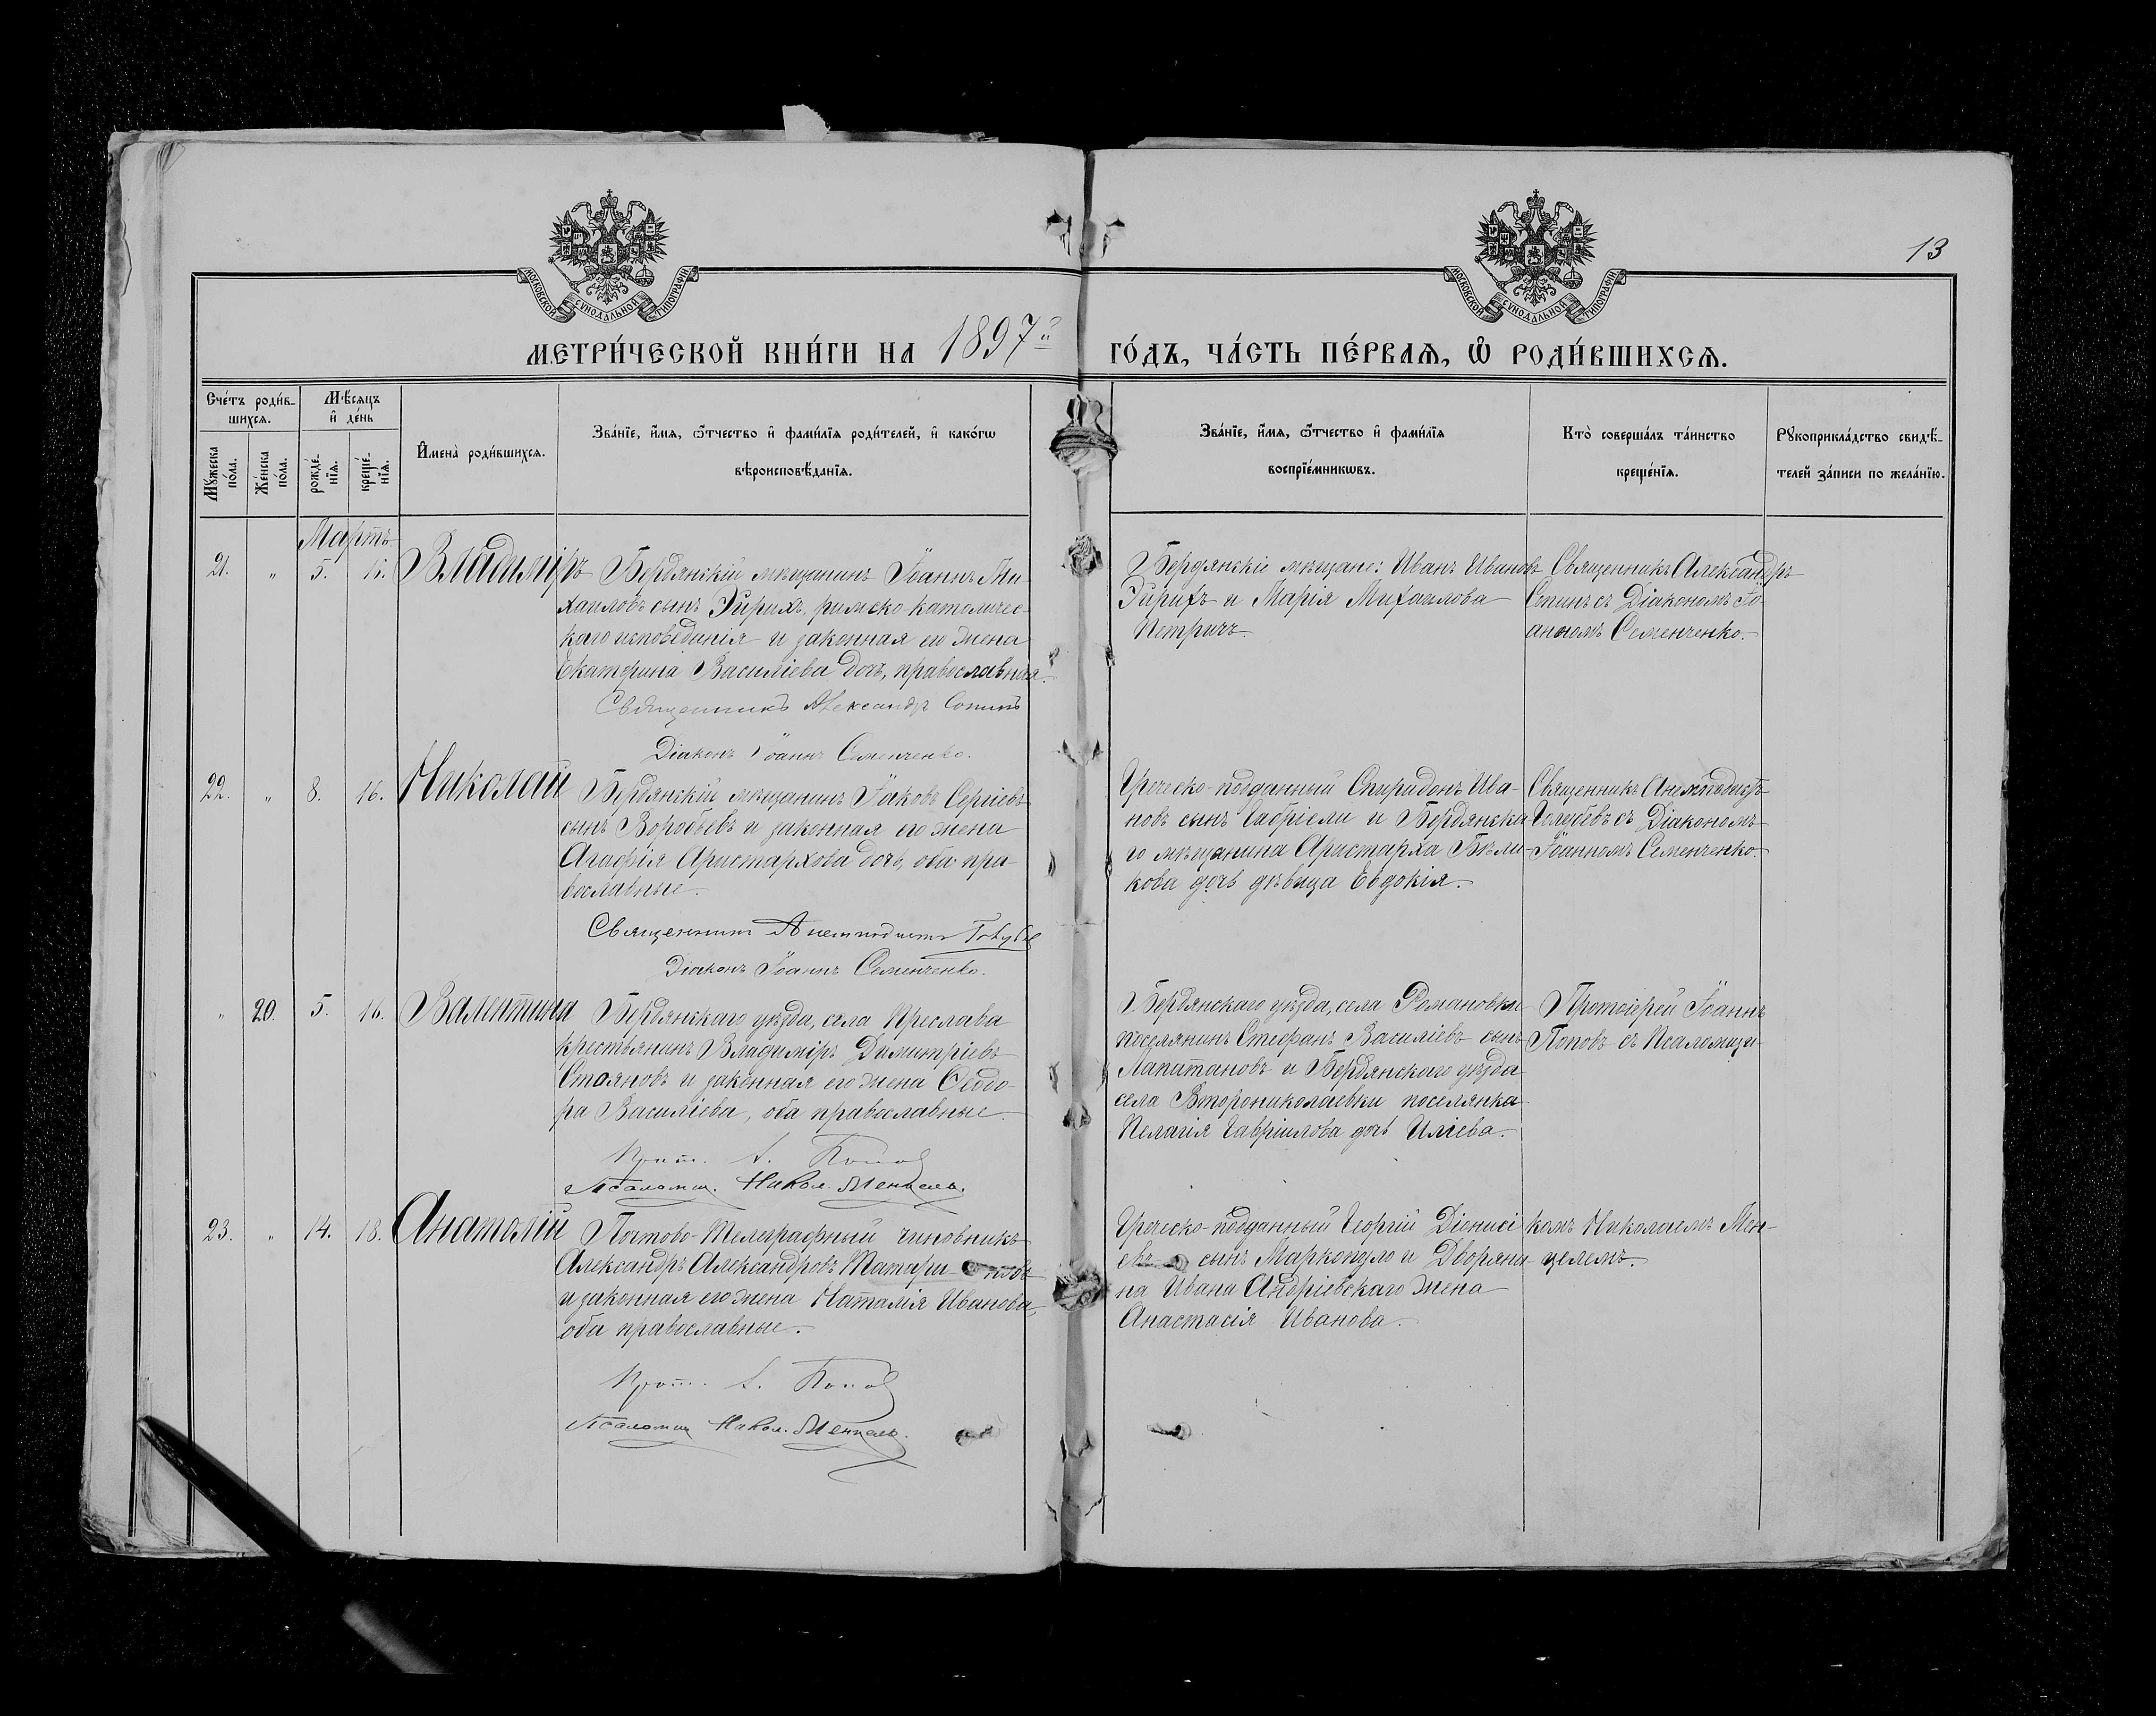 МОСКОВСКОЙ СѴНОДАЛЬНОЙ ТИПОГРАФІИ
МОСКОВСКОЙ СѴНОДАЛЬНОЙ ТИПОГРАФІИ
13
МЕТРИ́ЧЕСКОЙ КНИ́ГИ НА 1897й ГО́ДЪ, ЧА́СТЬ ПЕ́РВАЯ, Ѽ РОДИ́ВШИХСЯ.
Сче́тъ роди́в-
шихся.
Мѣ́сяцъ
и҆ де́нь
Мꙋ́жеска по́ла.
Же́нска по́ла.
рожде́-нїѧ.
креще́-нїѧ.
И҆мена̀ роди́вшихсѧ.
Зва́нїе, и҆́мѧ, ѻ҆́тчество и҆ фами́лїѧ роди́телей, и҆ како́гѡ
вѣроисповѣ́данїѧ.
Зва́нїе, и҆́мѧ, ѻ҆́тчество и҆ фами́лїѧ
воспрїе́мникѡвъ.
Кто̀ соверша́лъ та́инство
креще́нїѧ.
Рꙋкоприкла́дство свидѣ́-
телей за́писи по жела́нїю.
Мартъ
21. " 5. 16. Владиміръ
Бердянскій мѣщанинъ Іоаннъ Ми-
хаиловъ сынъ римско-католичес-
каго исповѣданія и законная его жена
Екатерина Василіева дочь, православная.
Священникъ Александръ Сопинъ
Діаконъ Іоаннъ Семенченко.
Бердянскіе мѣщане: Иванъ Ивановъ
и Марія Михаилова
Петричъ.
Священникъ Александръ
Сопинъ съ Діакономъ Іо-
анномъ Семенченко.
22. " 8. 16. Николай
Бердянскій мѣщанинъ Іаковъ Сергіевъ
сынъ Воробьевъ и законная его жена
Агафія Аристархова дочь, оба пра-
вославные.
Священникъ Анемподистъ Голубевъ
Діаконъ Іоаннъ Семенченко.
Греческо-подданный Спиридонъ Ива-
новъ сынъ Габріели и Бердянска-
го мѣщанина Аристарха Бѣли-
кова дочь дѣвица Евдокія.
Священникъ Анемподистъ
Голубевъ съ Діакономъ
Іоанномъ Семенченко.
" 20. 5. 16. Валентина
Бердянскаго уѣзда, села Преслава
крестьянинъ Владиміръ Димитріевъ
Стояновъ и законная его жена Ѳеодо-
ра Василіева, оба православные.
Прот. І. Поповъ
Псаломщ. Никол. Менцель.
Бердянскаго уѣзда, села Романовки
поселянинъ Стефанъ Василіевъ сынъ
Лапитановъ и Бердянскаго уѣзда
села Второниколаевки поселянка
Пелагія Гавріилова дочь Иліева.
Протоіерей Іоаннъ
Поповъ съ Псаломщи-
23. " 14. 18. Анатолій
Почтово-Телеграфный чиновникъ
Александръ Александровъ Татари-новъ
и законная его жена Наталія Иванова,
оба православные.
Прот. І. Поповъ
Псаломщ. Никол. Менцель.
Греческо-подданный Георгій Діонисі-
евъ сынъ Маркопуло и Дворяни-
на Ивана Андріевскаго жена
Анастасія Иванова.
комъ Николаемъ Мен-
целемъ.